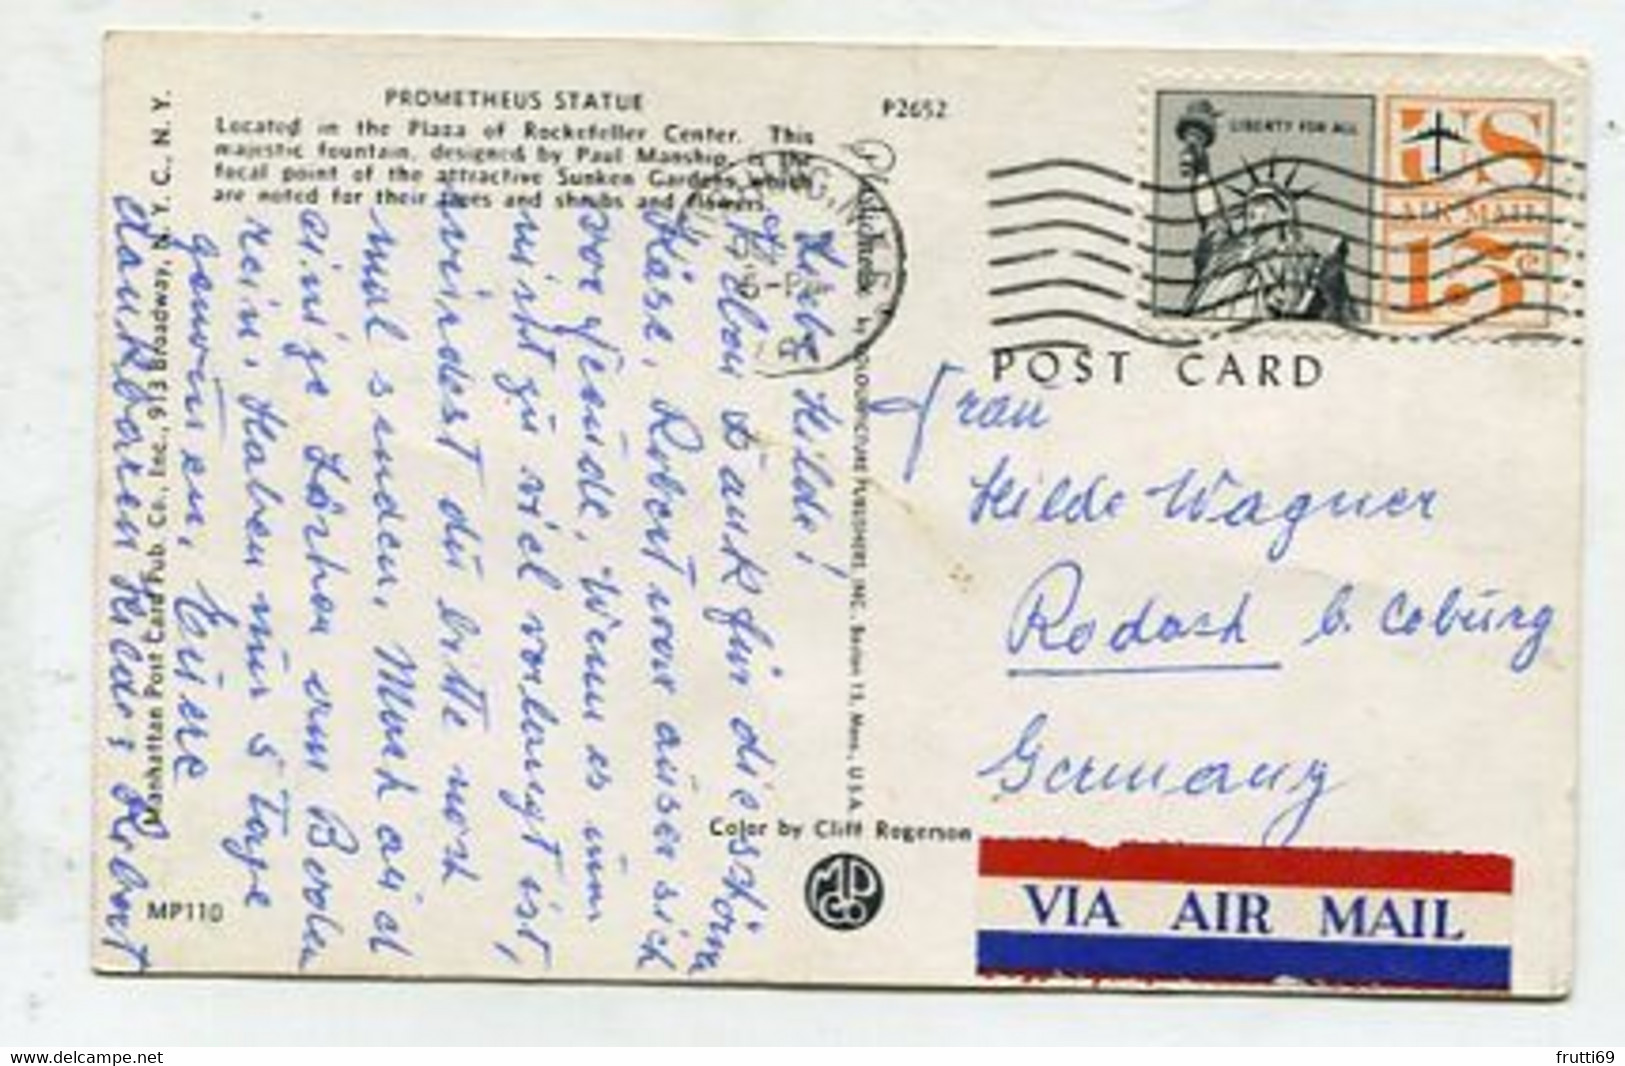 PROMETHEUS STATUE
Located in the Plaza of Rockefeller Center. This
majestic fountain, designed by Paul Manship, is the
focal point of the attractive Sunken Gardens, which
are noted for their trees and shrubs and flowers.
P2652
LIBERTY FOR ALL
US
AIR MAIL
15c
POST CARD
Liebe Hilde!
Haben dank für die schönen
Käse, Robert war ausser sich
vor Freude. Wenn es nun
nicht zu viel verlangt ist,
würdest du bitte noch
mal senden. Much arid
einige Lörchen vom Boden
rein. Haben nur 5 Tage
gewonnen. Eüere
dankbaren Hilde & Robert
Frau
Hilde Wagner
Rodach b. Coburg
Germany
Plastichrome by COLOURPICTURE PUBLISHERS, INC. Boston 15, Mass., U.S.A.
Manhattan Post Card Pub. Co., Inc., 913 Broadway, N. Y. C., N. Y.
Color by Cliff Rogerson
MPD Co
MP110
VIA AIR MAIL
https://www.delcampe.net
frutti69